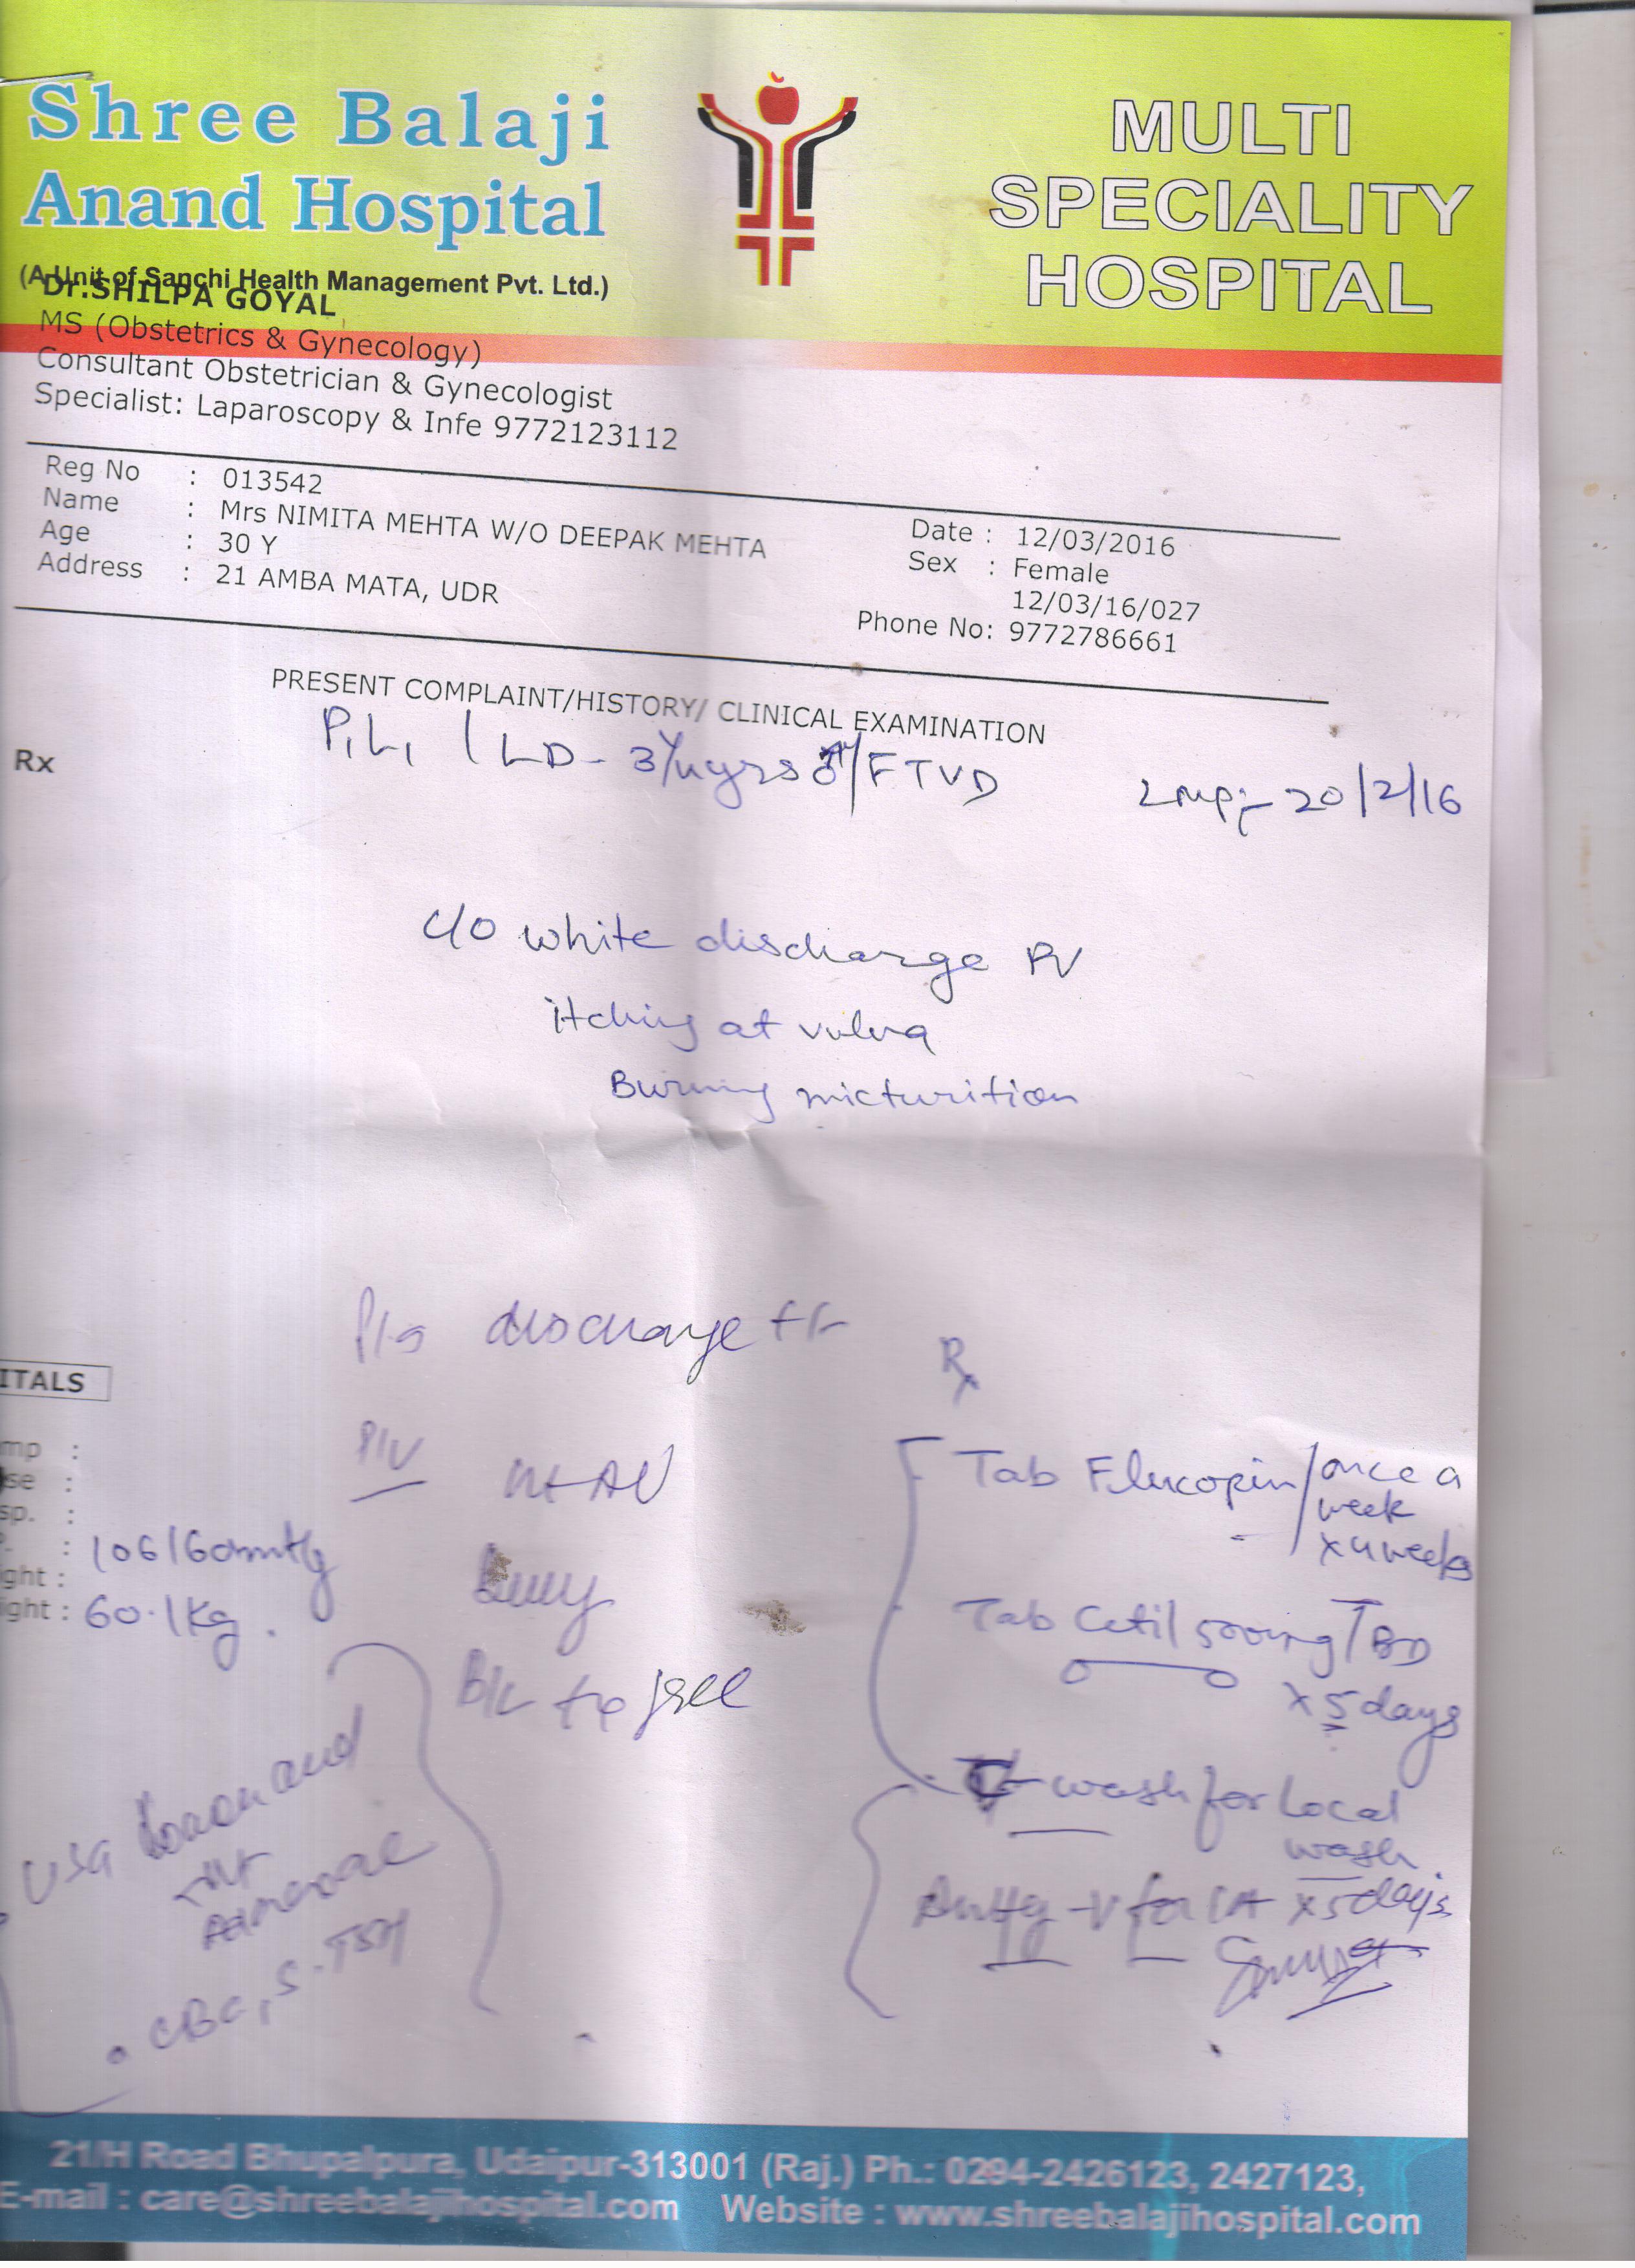 Shree Balaji
Anand Hospital
(A Unit of Sanchi Health Management Pvt. Ltd.)
MULTI
SPECIALITY
HOSPITAL
Dr.SHILPA GOYAL
MS (Obstetrics & Gynecology)
Consultant Obstetrician & Gynecologist
Specialist: Laparoscopy & Infe 9772123112
Reg No : 013542
Name : Mrs NIMITA MEHTA W/O DEEPAK MEHTA
Age : 30 Y
Address : 21 AMBA MATA, UDR
Date : 12/03/2016
Sex : Female
12/03/16/027
Phone No: 9772786661
PRESENT COMPLAINT/HISTORY/ CLINICAL EXAMINATION
Rx
P1L1 / LD - FTVD
LMP:- 20/2/16
C/O white discharge PV
itching at vulva
Burning micturition
P/S discharge ++
P/V UtAV
B/L fx free
ITALS
mp :
se :
sp. :
: 106/60mmHg
ght :
ight : 60.1kg.
USG
CBC, S.TSH
Rx
Tab Flucopin / once a
week
x 4 weeks
Tab Cetil 500mg / BD
x 5 days
V-wash for Local
wash.
-V for LA x 5 days
21/H Road Bhupalpura, Udaipur-313001 (Raj.) Ph.: 0294-2426123, 2427123,
E-mail : care@shreebalajihospital.com Website : www.shreebalajihospital.com